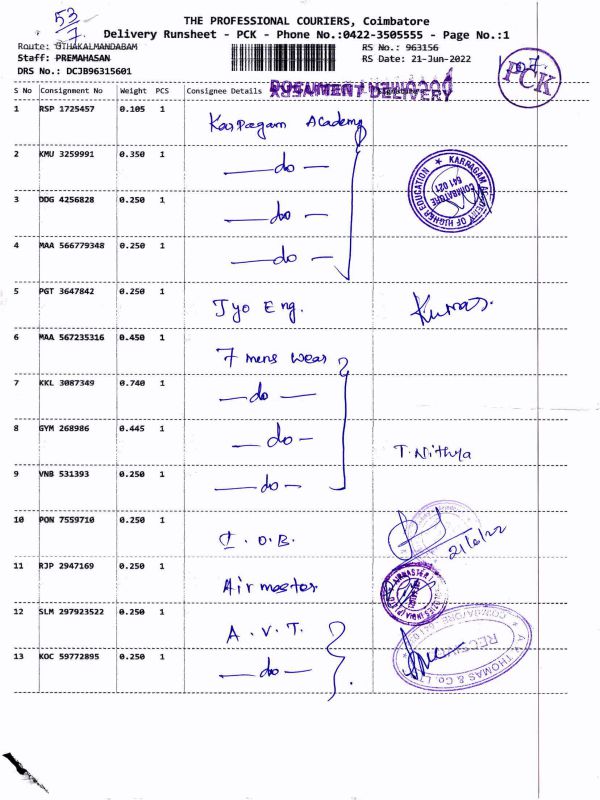 53
7
THE PROFESSIONAL COURIERS, Coimbatore
Delivery Runsheet - PCK - Phone No.:0422-3505555 - Page No.:1
Route: OTHAKALMANDABAM
RS No.: 963156
Staff: PREMAHASAN
RS Date: 21-Jun-2022
DRS No.: DCJB96315601
PCK
S No Consignment No Weight PCS Consignee Details
1 RSP 1725457 0.105 1 Karpagam Academy
2 KMU 3259991 0.350 1 — do —
3 DDG 4256828 0.250 1 — do —
4 MAA 566779348 0.250 1 — do —
KARPAGAM ACADEMY OF HIGHER EDUCATION
COIMBATORE
641 021
5 PGT 3647842 0.250 1 Jyo Eng. Kumar.
6 MAA 567235316 0.450 1 7 mens wear
7 KKL 3087349 0.740 1 — do —
8 GYM 268986 0.445 1 — do — T. Nithya
9 VNB 531393 0.250 1 — do —
10 PON 7559710 0.250 1 I.O.B. 21/6/22
11 RJP 2947169 0.250 1 Air master
12 SLM 297923522 0.250 1 A.V.T.
13 KOC 59772895 0.250 1 — do —
A.V. THOMAS & CO. LTD
RECEIVED